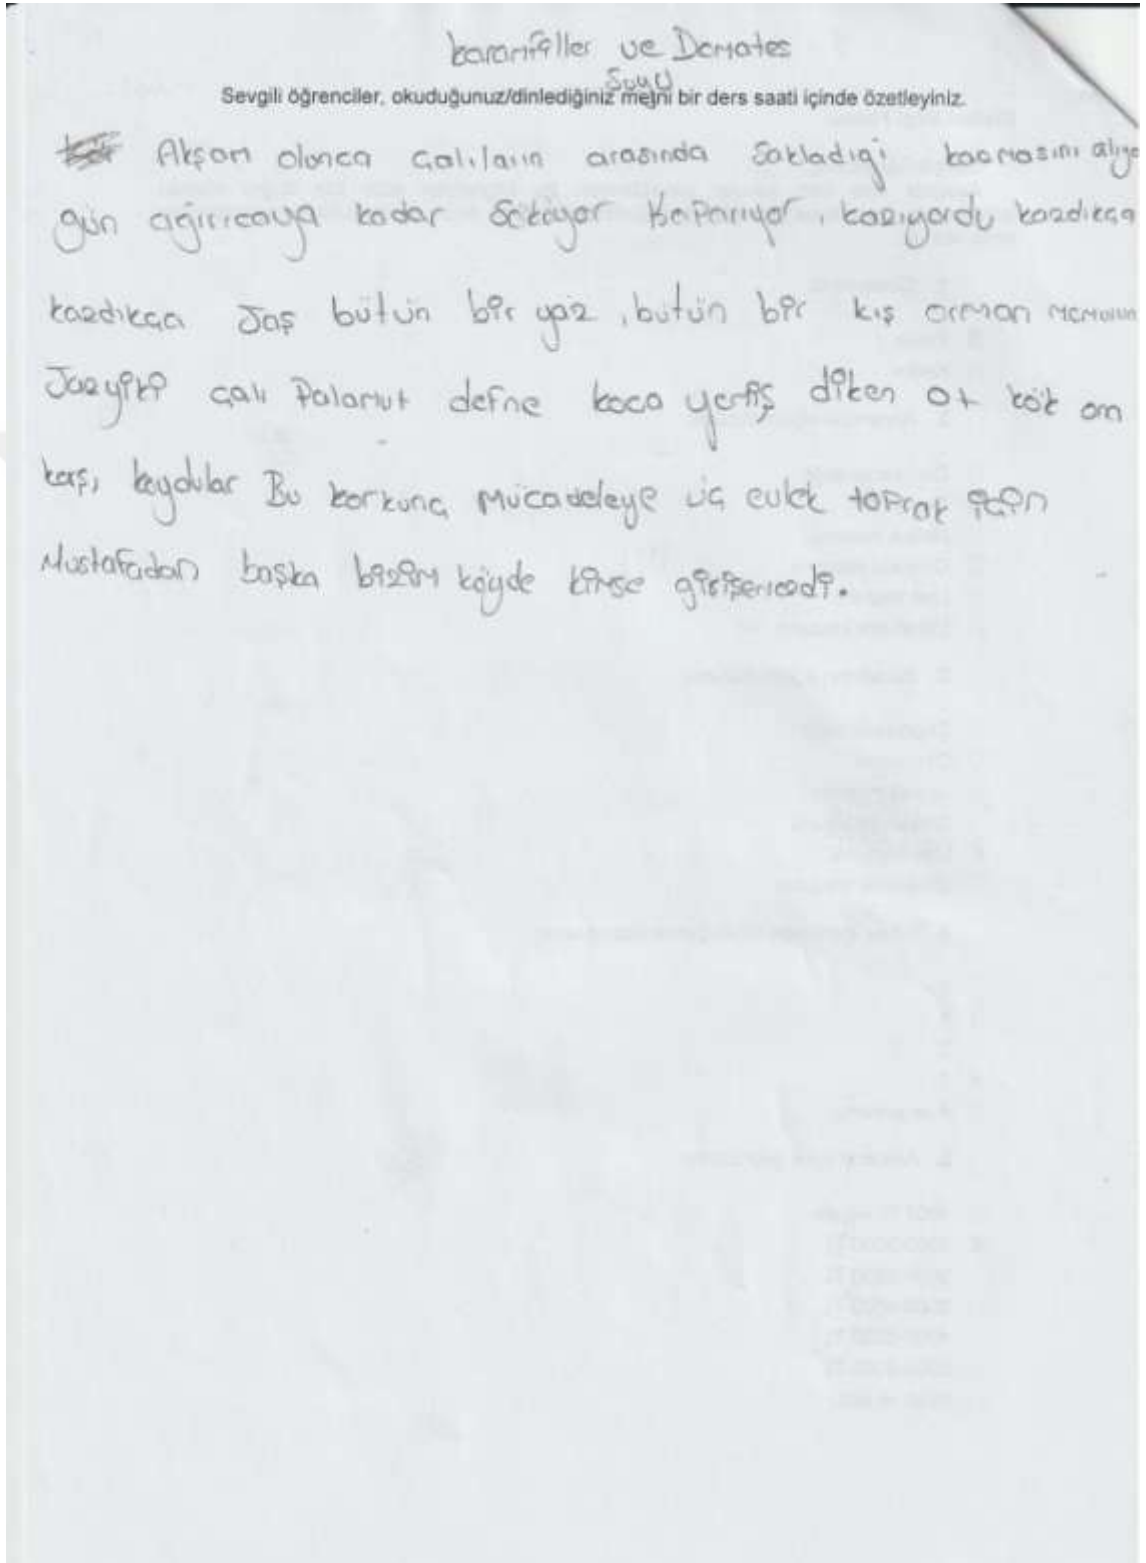 karanfiller ve Domates
Suyu
Sevgili öğrenciler, okuduğunuz/dinlediğiniz metni bir ders saati içinde özetleyiniz.
Akşam olunca çalıların arasında sakladığı kazmasını alıyo
gün ağırıcaya kadar söküyor koparıyor, kazıyordu kazdıkça
kazdıkça Jaş bütün bir yaz, bütün bir kış orman memurun
çalı Palamut defne koca yemiş diken ot kök om
karşı koydular Bu korkunç mücadeleye üç evlek toprak için
Mustafadan başka bizim köyde kimse girişemezdi.